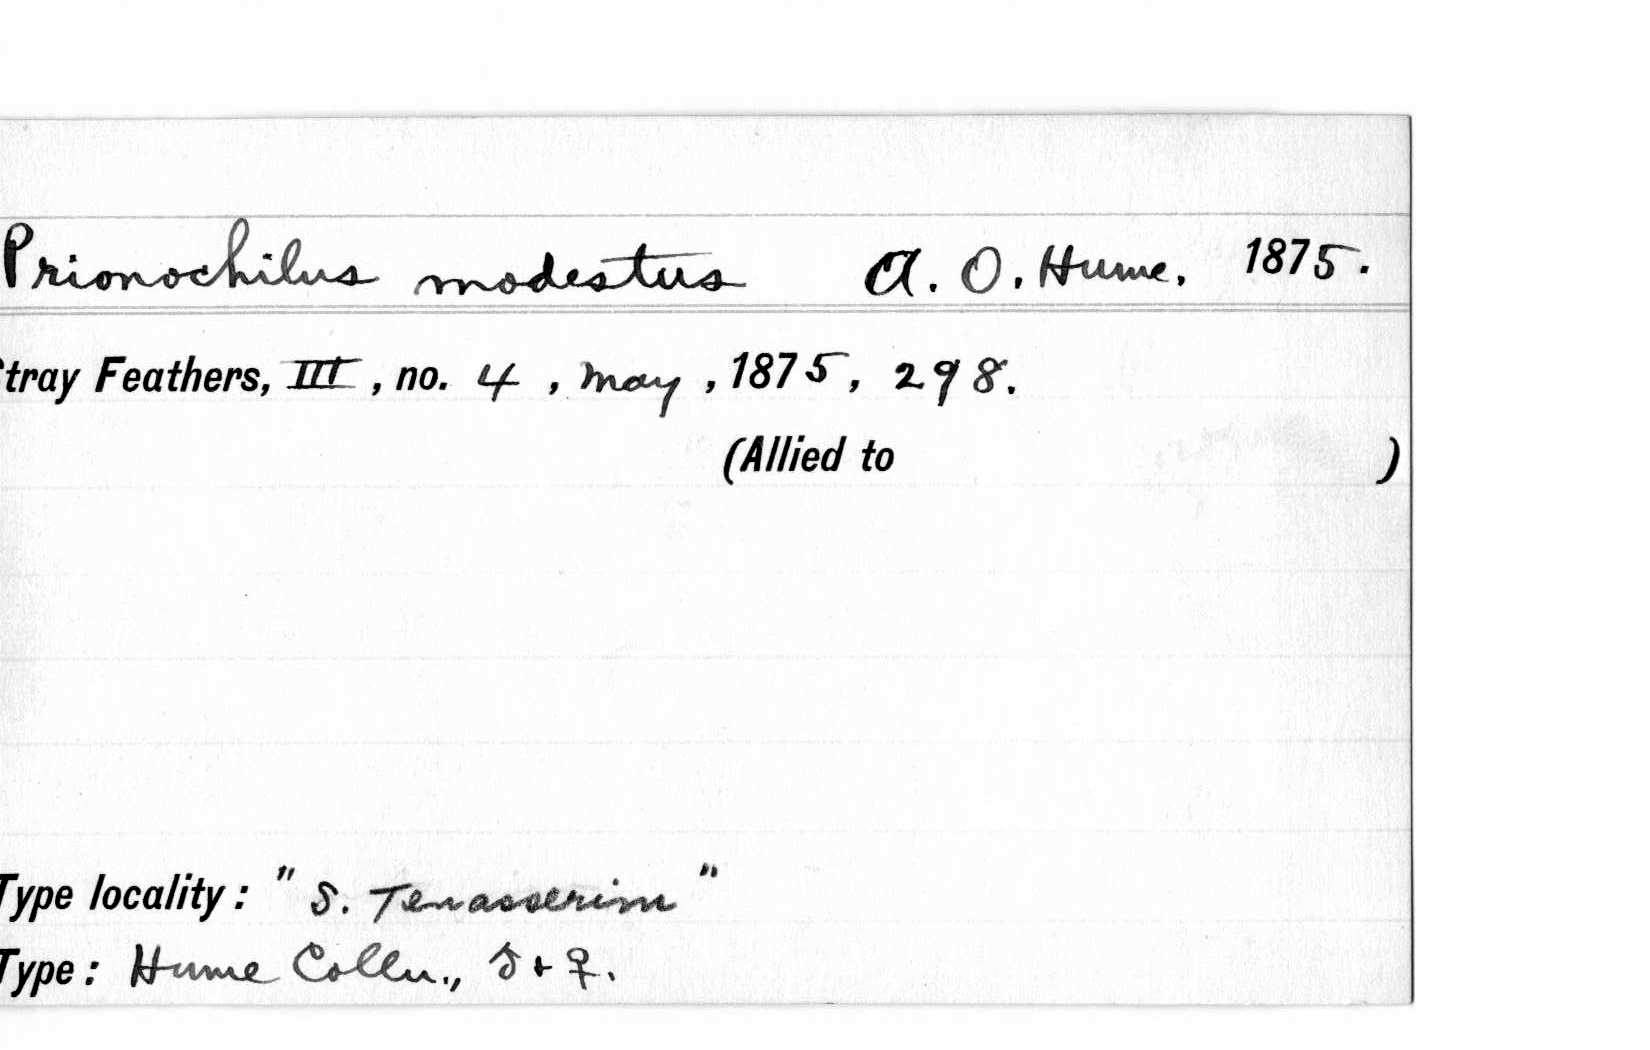 Prionochilus modestus A. O. Hume. 1875.
Stray Feathers, III, no. 4, May, 1875, 298.
(Allied to )
Type locality: "S. Tenasserim"
Type: Hume Colln., ♂ + ♀.